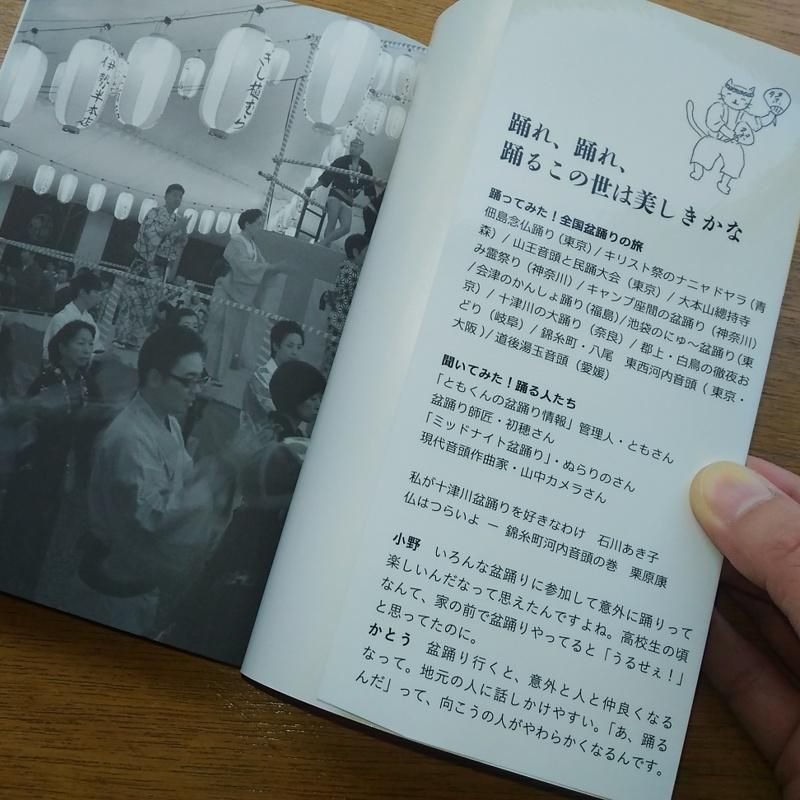 伊勢半本店
きし植むら
踊れ、踊れ、
踊るこの世は美しきかな
踊ってみた！全国盆踊りの旅
佃島念仏踊り（東京）/ キリスト祭のナニャドヤラ（青
森）/ 山王音頭と民踊大会（東京）/ 大本山總持寺
み霊祭り（神奈川）/ キャンプ座間の盆踊り（神奈川）
/ 会津のかんしょ踊り（福島）/ 池袋のにゅ〜盆踊り（東
京）/ 十津川の大踊り（奈良）/ 郡上・白鳥の徹夜お
どり（岐阜）/ 錦糸町・八尾　東西河内音頭（東京・
大阪）/ 道後湯玉音頭（愛媛）
聞いてみた！踊る人たち
「ともくんの盆踊り情報」管理人・ともさん
盆踊り師匠・初穂さん
「ミッドナイト盆踊り」・ぬらりのさん
現代音頭作曲家・山中カメラさん
私が十津川盆踊りを好きなわけ　石川あき子
仏はつらいよ ー 錦糸町河内音頭の巻　栗原康
小野　いろんな盆踊りに参加して意外に踊りって
楽しいんだなって思えたんですよね。高校生の頃
なんて、家の前で盆踊りやってると「うるせぇ！」
と思ってたのに。
かとう　盆踊り行くと、意外と人と仲良くなる
なって。地元の人に話しかけやすい。「あ、踊る
んだ」って、向こうの人がやわらかくなるんです。